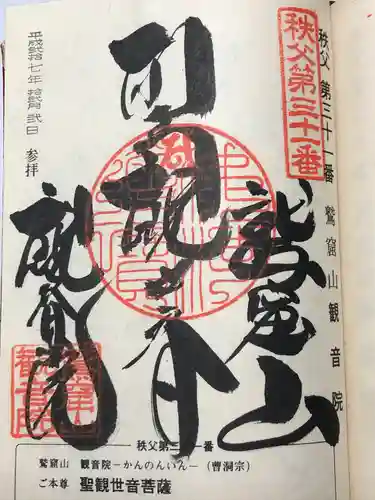 秩父 第三十一番 鷲窟山観音院
秩父第三十一番
鷲窟山
聖観世音
観音院
平成弐拾七年 拾弐月 弐日 参拝
秩父第三十一番
鷲窟山 観音院－かんのんいん－(曹洞宗)
ご本尊 聖観世音菩薩